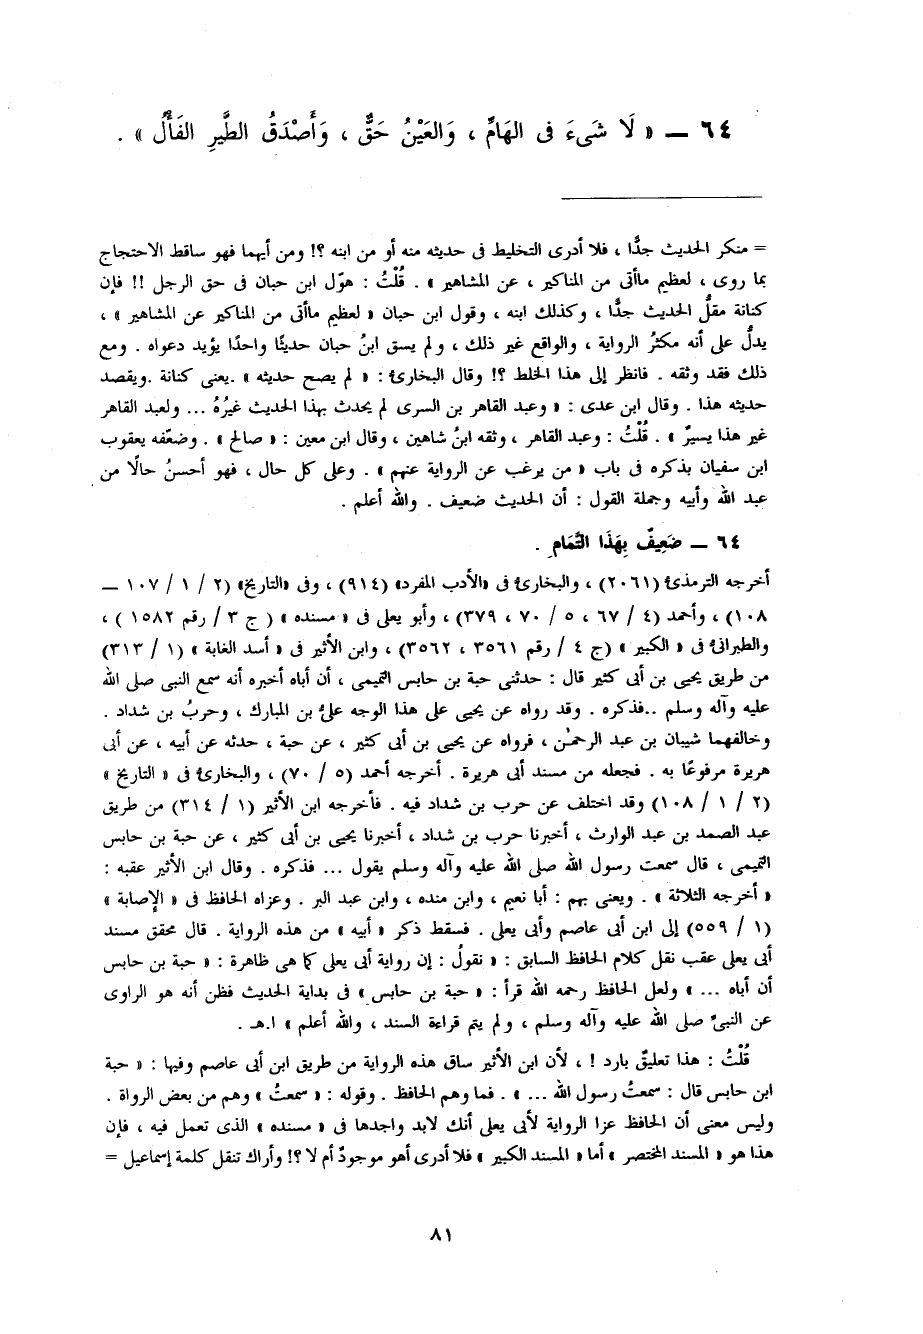 ٦٤ ــ « لَا شَىءَ فى الهَامِّ ، وَالعَيْنُ حَقٌّ ، وَأَصْدَقُ الطَّيرِ الفَأْلُ » .
= منكر الحديث جدًّا ، فلا أدرى التخليط فى حديثه منه أو من ابنه ؟! ومن أيهما فهو ساقط الاحتجاج
بما روى ، لعظيم ماأتى من المناكير ، عن المشاهير » . قُلْتُ : هوّل ابن حبان فى حق الرجل !! فإن
كنانة مقلُّ الحديث جدًّا ، وكذلك ابنه ، وقول ابن حبان « لعظيم ماأتى من المناكير عن المشاهير » ،
يدلُّ على أنه مكثرُ الرواية ، والواقع غير ذلك ، ولم يسق ابنُ حبان حديثًا واحدًا يؤيد دعواه . ومع
ذلك فقد وثقه . فانظر إلى هذا الخلط ؟! وقال البخارىُّ : « لم يصح حديثه » .يعنى كنانة .ويقصد
حديثه هذا . وقال ابن عدى : « وعبد القاهر بن السرى لم يحدث بهذا الحديث غيرُهُ ... ولعبد القاهر
غير هذا يسيرٌ » . قُلْتُ : وعبد القاهر ، وثقه ابنُ شاهين ، وقال ابن معين : « صالح » . وضعّفه يعقوب
ابن سفيان بذكره فى باب « من يرغب عن الرواية عنهم » . وعلى كل حال ، فهو أحسنُ حالًا من
عبد الله وأبيه وجملة القول : أن الحديث ضعيف . والله أعلم .
٦٤ ــ ضَعِيفٌ بِهَذَا التَّمَامِ .
أخرجه الترمذىُّ (٢٠٦١) ، والبخارىُّ فى «الأدب المفرد» (٩١٤) ، وفى «التاريخ» (٢ / ١ / ١٠٧ ــ
١٠٨) ، وأحمد (٤ / ٦٧ ، ٥ / ٧٠ ، ٣٧٩)، وأبو يعلى فى « مسنده » ( ج ٣ / رقم ١٥٨٢ ) ،
والطبرانىُّ فى « الكبير » (ج ٤ / رقم ٣٥٦١ ، ٣٥٦٢) ، وابن الأثير فى « أسد الغابة » (١ / ٣١٣)
من طريق يحيى بن أبى كثير قال : حدثنى حبة بن حابس التميمى ، أن أباه أخبره أنه سمع النبى صلى الله
عليه وآله وسلم ..فذكره . وقد رواه عن يحيى على هذا الوجه علىُّ بن المبارك ، وحربُ بن شداد .
وخالفهما شيبان بن عبد الرحمٰن ، فرواه عن يحيى بن أبى كثير ، عن حبة ، حدثه عن أبيه ، عن أبى
هريرة مرفوعًا به . فجعله من مسند أبى هريرة . أخرجه أحمد (٥ / ٧٠) ، والبخارىُّ فى « التاريخ »
(٢ / ١ / ١٠٨) وقد اختلف عن حرب بن شداد فيه . فأخرجه ابن الأثير (١ / ٣١٤) من طريق
عبد الصمد بن عبد الوارث ، أخبرنا حرب بن شداد ، أخبرنا يحيى بن أبى كثير ، عن حبة بن حابس
التميمى ، قال سمعت رسول الله صلى الله عليه وآله وسلم يقول ... فذكره . وقال ابن الأثير عقبه :
« أخرجه الثلاثة » . ويعنى بهم : أبا نعيم ، وابن منده ، وابن عبد البر . وعزاه الحافظ فى « الإصابة »
(١ / ٥٥٩) إلى ابن أبى عاصم وأبى يعلى . فسقط ذكر « أبيه » من هذه الرواية . قال محقق مسند
أبى يعلى عقب نقل كلام الحافظ السابق : « نقولُ : إن رواية أبى يعلى كما هى ظاهرة : « حبة بن حابس
أن أباه ... » ولعل الحافظ رحمه الله قرأ : « حبة بن حابس » فى بداية الحديث فظن أنه هو الراوى
عن النبىِّ صلى الله عليه وآله وسلم ، ولم يتم قراءة السند ، والله أعلم » ا.هـ .
قُلْتُ : هذا تعليقٌ بارد ! ، لأن ابن الأثير ساق هذه الرواية من طريق ابن أبى عاصم وفيها : « حبة
ابن حابس قال : سمعتُ رسول الله ... » . فما وهم الحافظ . وقوله : « سمعتُ » وهم من بعض الرواة .
وليس معنى أن الحافظ عزا الرواية لأبى يعلى أنك لابد واجدها فى « مسنده » الذى تعمل فيه ، فإن
هذا هو « المسند المختصر » أما « المسند الكبير » فلا أدرى أهو موجودٌ أم لا ؟! وأراك تنقل كلمة إسماعيل =
٨١